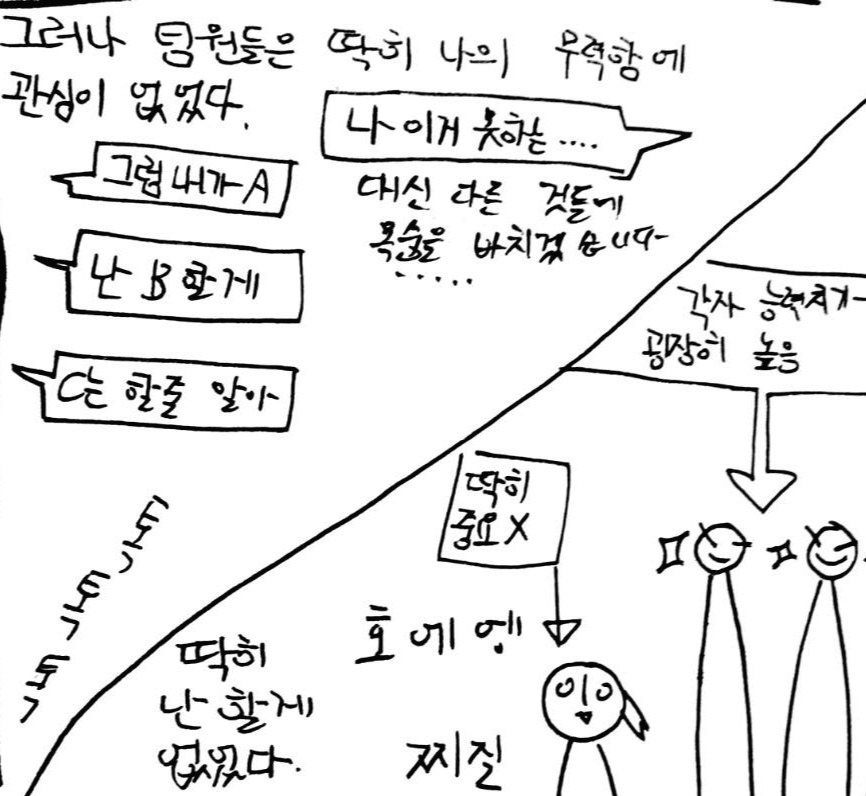 그러나 팀원들은 딱히 나의 무력함에
관심이 없었다.
나 이거 못하는....
대신 다른 것들에
목숨을 바치겠습니다
.....
그럼 내가 A
난 B 할게
C는 할줄 알아
톡,
톡,
톡,
각자 능력치가
굉장히 높음
딱히
중요X
호에엥
찌질
딱히
난 할게
없었다.